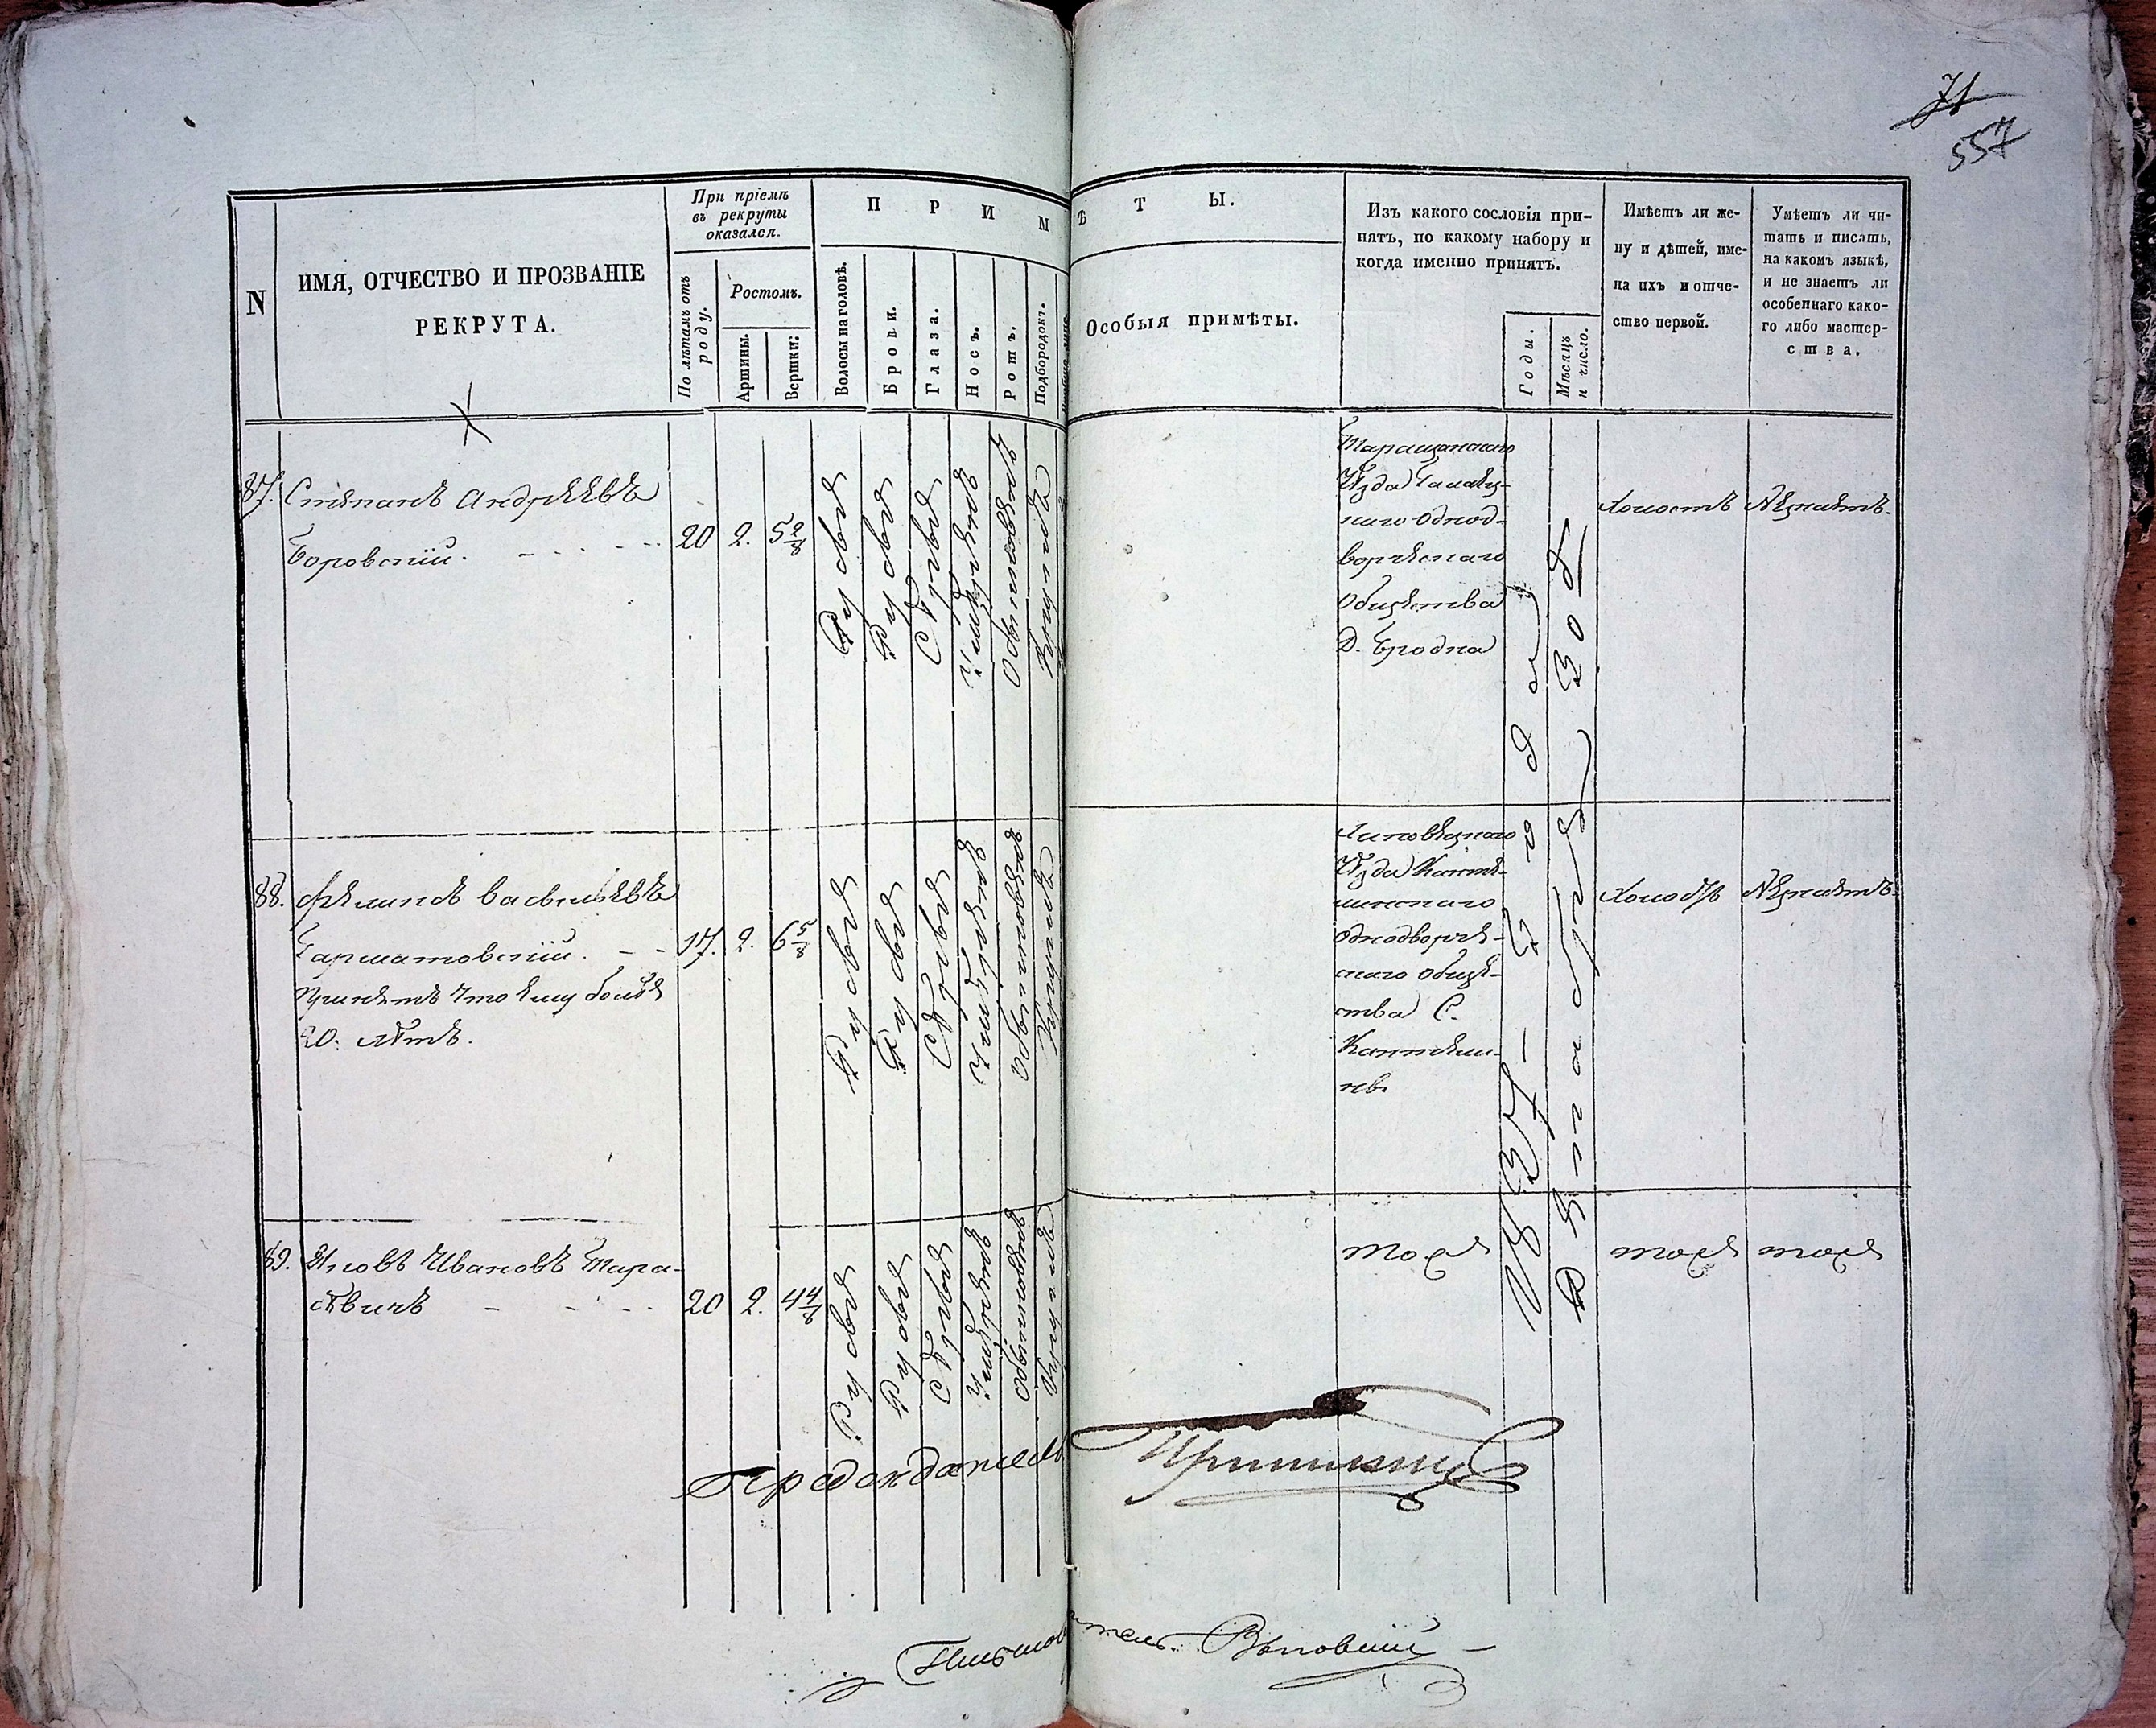 71
557
N
ИМЯ, ОТЧЕСТВО И ПРОЗВАНІЕ
РЕКРУТА.
При пріемѣ
въ рекруты
оказался.
По лѣтамъ отъ
роду.
Ростомъ.
Аршины.
Вершки:
П Р И М Ѣ Т Ы.
Волосы на головѣ.
Брови.
Глаза.
Носъ.
Ротъ.
Подбородокъ.
Особыя примѣты.
Изъ какого сословія при-
нятъ, по какому набору и
когда именно принятъ.
Годы.
Мѣсяцъ
и число.
Имѣетъ ли же-
ну и дѣтей, име-
на ихъ и отче-
ство первой.
Умѣетъ ли чи-
тать и писать,
на какомъ языкѣ,
и не знаетъ ли
особеннаго како-
го либо мастер-
ства.
87. Степанъ Андреевъ
Боровскій.
20 2. 5 2/8
Русые
Русые
Сѣрые
Умѣренъ
Обыкновенъ
Круглъ
Таращанскаго
Уѣзда
наго Однод-
ворческаго
Общества
Д. Бродка
Холостъ
Незнаетъ.
88. Филипъ Васильевъ
Гарматовскій.
Принятъ что ему более
20. лѣтъ.
17. 2. 6 5/8
Русые
Русые
Сѣрые
Умѣренъ
Обыкновенъ
Круглъ
Липовецкаго
Уѣзда
Однодворче-
скаго Обще-
ства С.
1837 - Года
Генваря 30
Холостъ
Незнаетъ.
89. Яковъ Ивановъ Тара-
севичъ
20 2. 4 4/8
Русые
Русые
Сѣрые
Умѣренъ
Обыкновенъ
Круглъ
Тоже
тоже
тоже
Предсѣдатель
Письмоводитель